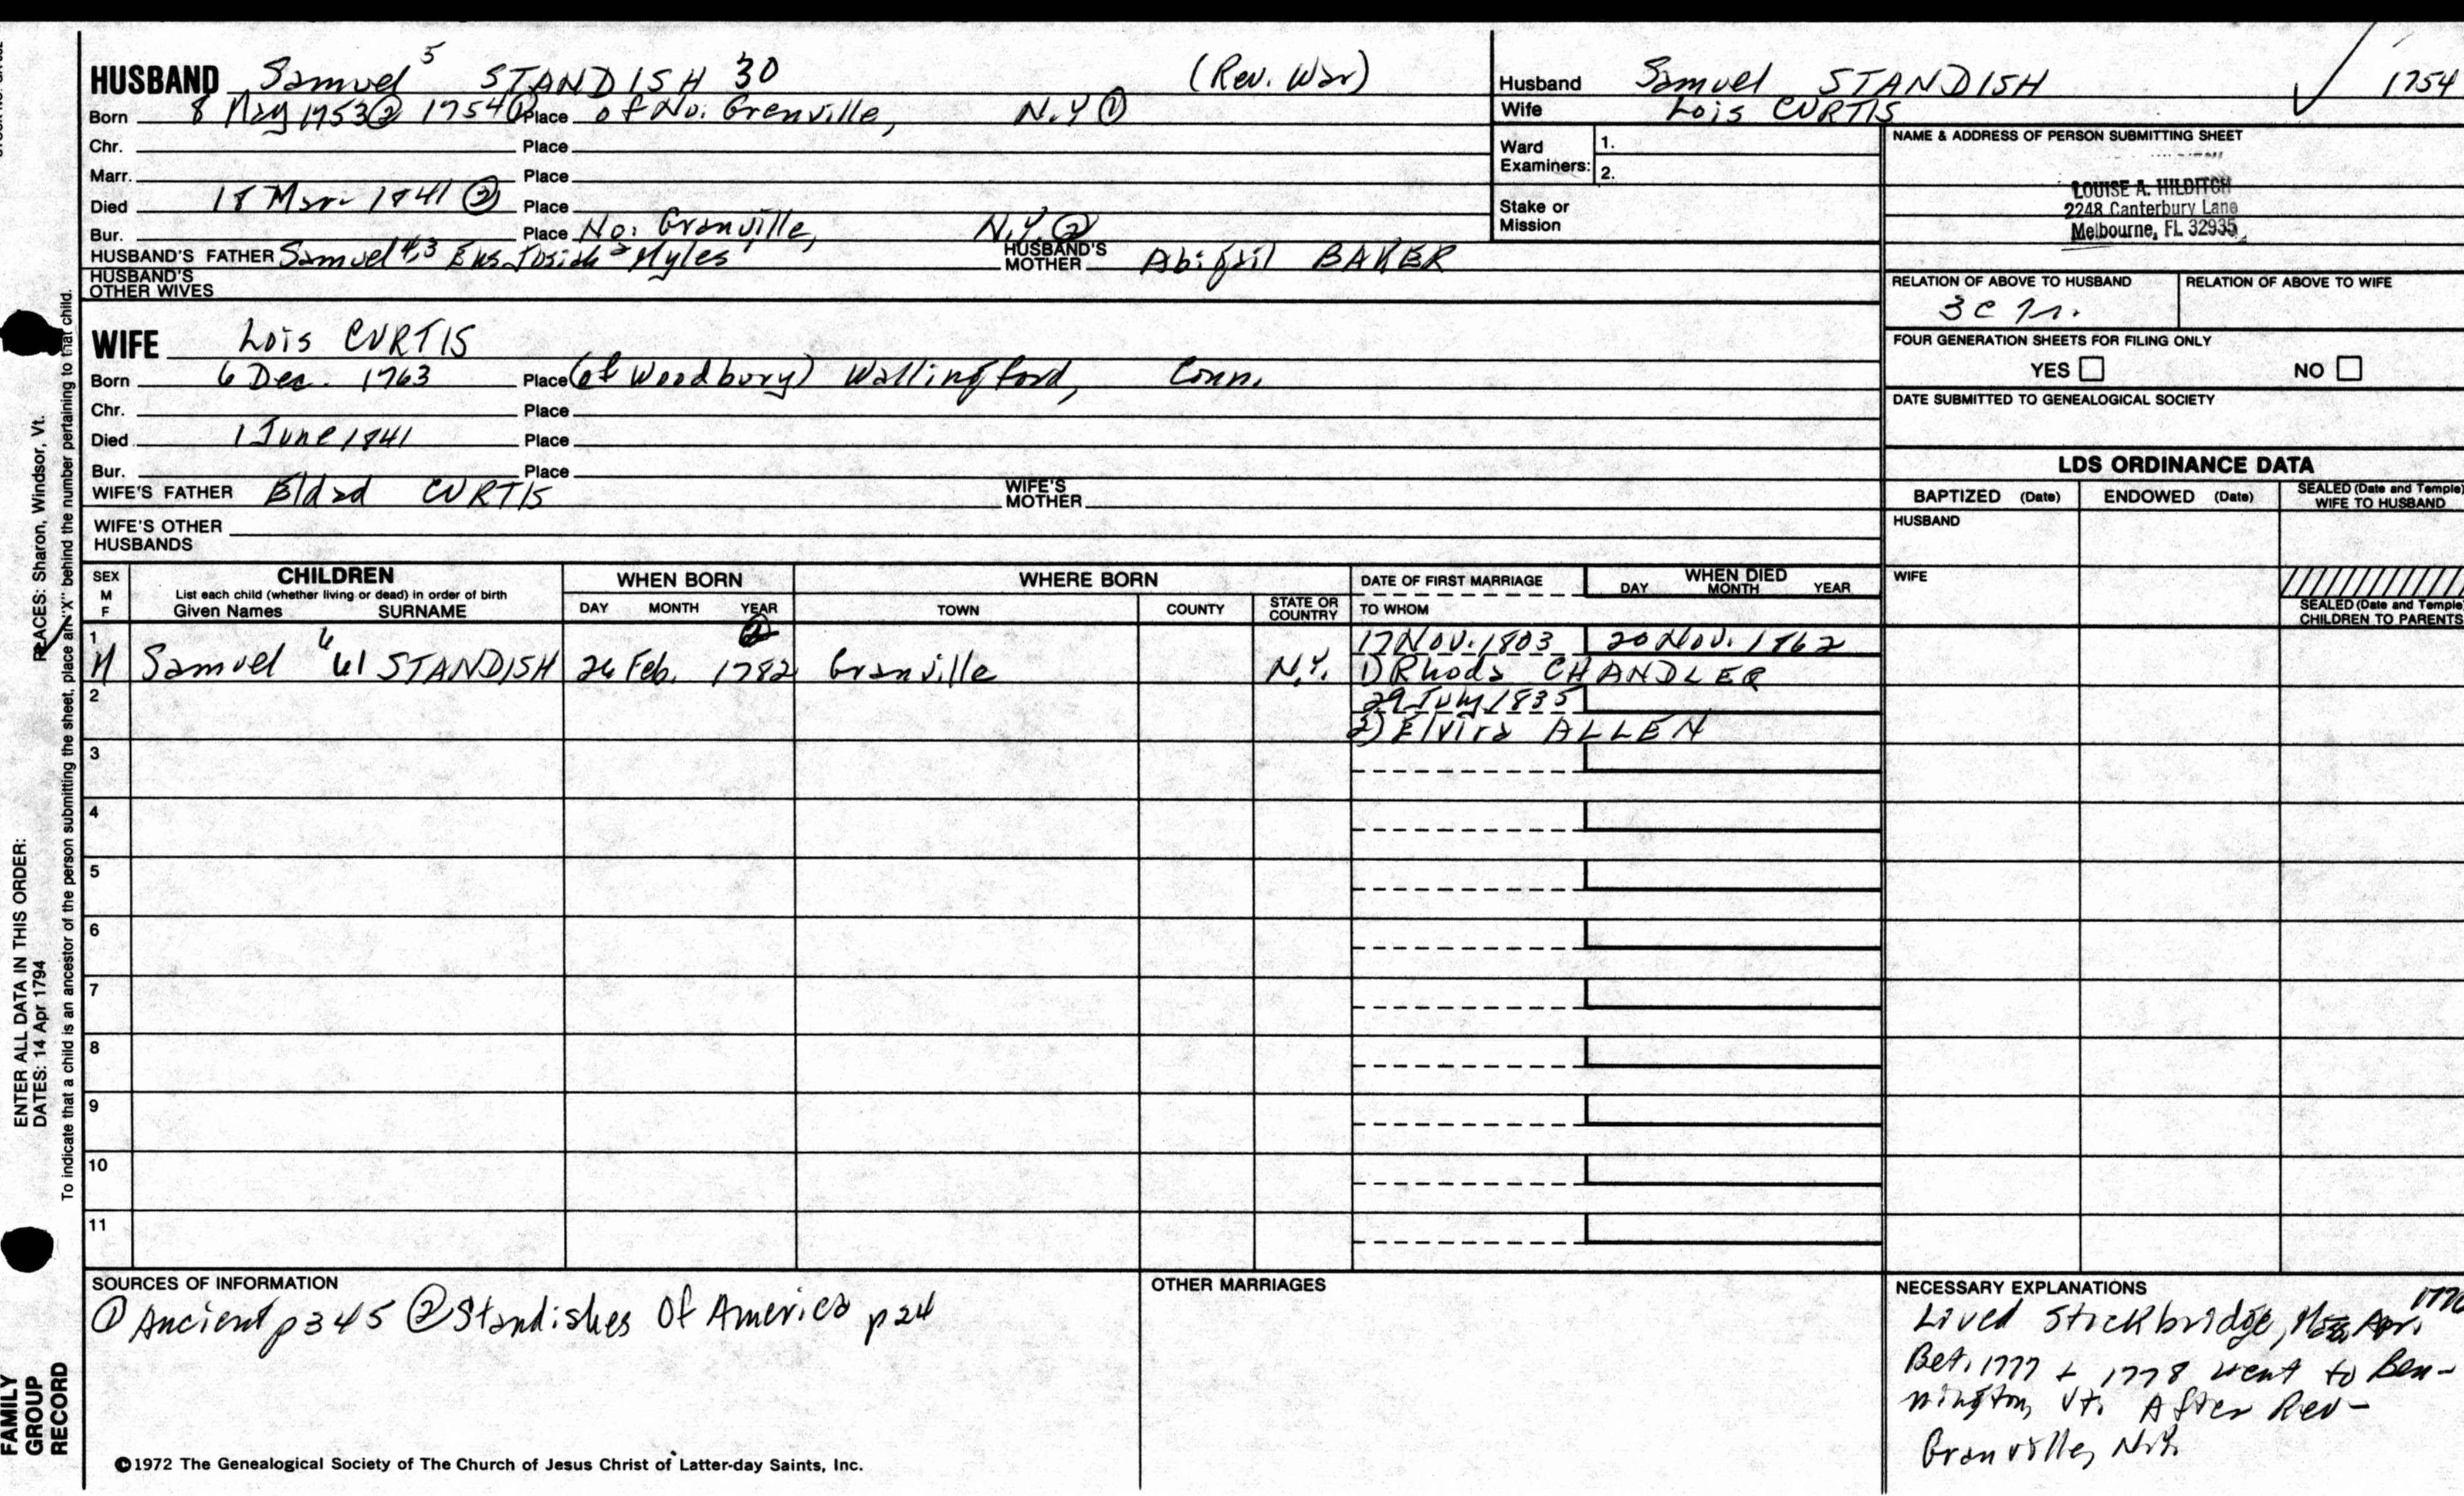 HUSBAND Samuel 5 STANDISH 30 (Rev. War)
Born 8 May 1753 ② 1754 ① Place of No. Grenville, N.Y ①
Chr. Place
Marr. Place
Died 18 Mar. 1841 ② Place
Bur. Place No. Granville, N.Y. ②
HUSBAND'S FATHER Samuel 4,3 Ens. Josiah 2 Myles 1 HUSBAND'S MOTHER Abigail BAKER
HUSBAND'S OTHER WIVES
WIFE Lois CURTIS
Born 6 Dec. 1763 Place (of Woodbury) Wallingford, Conn.
Chr. Place
Died 1 June 1841 Place
Bur. Place
WIFE'S FATHER Eldad CURTIS WIFE'S MOTHER
WIFE'S OTHER HUSBANDS
Husband Samuel STANDISH 1754
Wife Lois CURTIS
Ward Examiners: 1.
2.
Stake or Mission
NAME & ADDRESS OF PERSON SUBMITTING SHEET
LOUISE A. HILDITCH
2248 Canterbury Lane
Melbourne, FL 32935
RELATION OF ABOVE TO HUSBAND RELATION OF ABOVE TO WIFE
FOUR GENERATION SHEETS FOR FILING ONLY
YES NO
DATE SUBMITTED TO GENEALOGICAL SOCIETY
LDS ORDINANCE DATA
BAPTIZED (Date) ENDOWED (Date) SEALED (Date and Temple) WIFE TO HUSBAND
HUSBAND
WIFE
SEALED (Date and Temple) CHILDREN TO PARENTS
SEX M F
CHILDREN
List each child (whether living or dead) in order of birth
Given Names SURNAME
WHEN BORN
DAY MONTH YEAR
WHERE BORN
TOWN COUNTY STATE OR COUNTRY
DATE OF FIRST MARRIAGE
TO WHOM
WHEN DIED
DAY MONTH YEAR
②
1 17 Nov. 1803 20 Nov. 1862
M Samuel 6 61 STANDISH 26 Feb. 1782 Granville N.Y. 1) Rhoda CHANDLER
2 29 July 1835
2) Elvira ALLEN
3
4
5
6
7
8
9
10
11
SOURCES OF INFORMATION
① Ancient p345 ② Standishes Of America p24
OTHER MARRIAGES
NECESSARY EXPLANATIONS
Lived Stockbridge, Mass. Apr.
Bet. 1777 + 1778 went to Ben-
nington, Vt. After Rev-
Granville, N.Y.
©1972 The Genealogical Society of The Church of Jesus Christ of Latter-day Saints, Inc.
ENTER ALL DATA IN THIS ORDER:
DATES: 14 Apr 1794 PLACES: Sharon, Windsor, Vt.
To indicate that a child is an ancestor of the person submitting the sheet, place an "X" behind the number pertaining to that child.
FAMILY
GROUP
RECORD